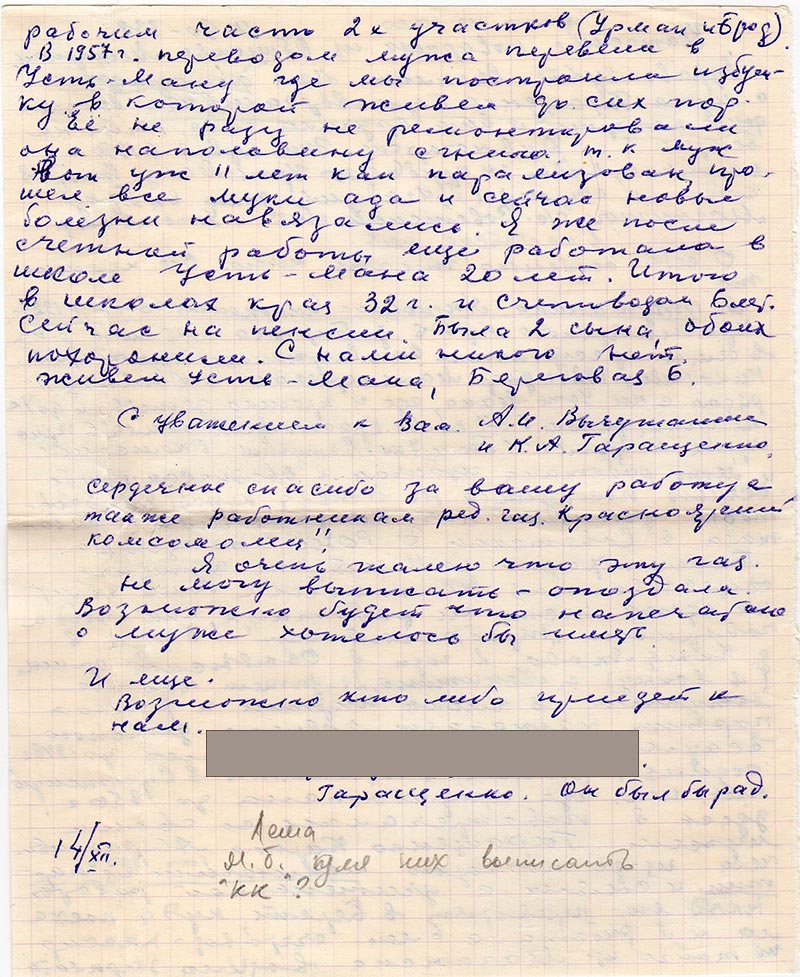 рабочим часто 2х участков (Урман и Брод).
В 1957г. переводом мужа перевели в
Усть-Ману где мы построили избуш-
ку в которой живем до сих пор.
Её не разу не ремонтировали
она наполовину сгнила. т.к муж
вот уж 11 лет как парализован, про-
шел все муки ада и сейчас новые
болезни навязались. Я же после
счетной работы, ещё работала в
школе Усть-Мана 20 лет. Итого
в школах края 32 г. и счетоводом 6 лет.
Сейчас на пенсии. Было 2 сына, обоих
похоронили. С нами никого нет.
живем Усть-Мана, Береговая 6.
С уважением к Вам. А.И.
и К.А. Гаращенко.
Сердечное спасибо за вашу работу а
также работникам ред. газ. Красноярский
комсомолец!!
Я очень жалею что эту газ.
не могу выписать - опоздала.
Возможно будет что напечатано
о муже хотелось бы иметь.
И еще.
Возможно кто либо приедет к
нам.
Гаращенко. Он был бы рад.
14/XII.
Леша
М.б. для них выписать
"КК"?